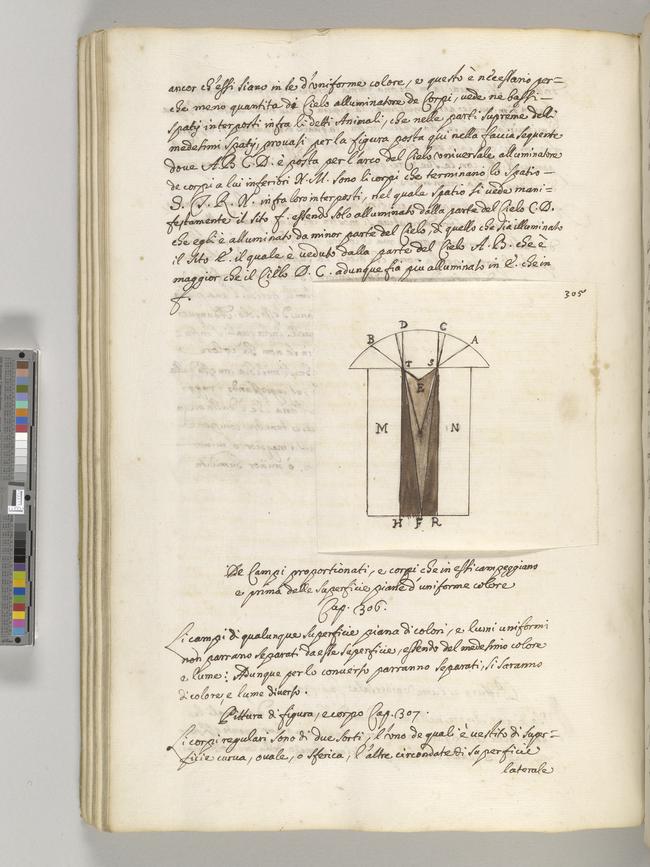 ancor ch'essi siano in se d'uniforme colore, e questo è necessario per=
che meno quantita di Cielo alluminatore de Corpi, vede ne bassi
spatij interposti infra li detti Animali, che nelle parti supreme delli
medesimi spatij, provasi per la figura posta qui nella faccia sequente
dove A. B. C. D. è posta per l'arco del Cielo vniversale alluminatore
de corpi a lui inferiori N. M. sono li corpi che terminano lo spatio
S. T. R. N. infra loro interposti, nel quale spatio si vede mani=
festamente il sito f. essendo solo alluminato dalla parte del Cielo C. D.
che egli è alluminato da minor parte del Cielo, di quello che sia illuminato
il sito E. il quale è veduto dalla parte del Cielo A. B. che è
maggior che il Cillo D. C. adunque fia piu alluminato in E. che in
f.
305
B D C A
T S
E
M N
H F R
De Campi proportionati, e corpi che in essi campeggiano
e prima delle superficie piane d'uniforme colore
Cap. 306.
Li campi di qualunque superficie piana di colori, e lumi uniformi
non parrano separati da esse superficie, essendo del medesimo colore
e lume: Adunque per lo converso parranno separati, si saranno
di colore, e lume diverso.
Pittura di figura, e corpo Cap. 307.
Li corpi regulari sono di due sorti, l'vno de quali è vestito di super=
ficie curva, ovale, o sferica, l'altre circondate di superficie
laterale